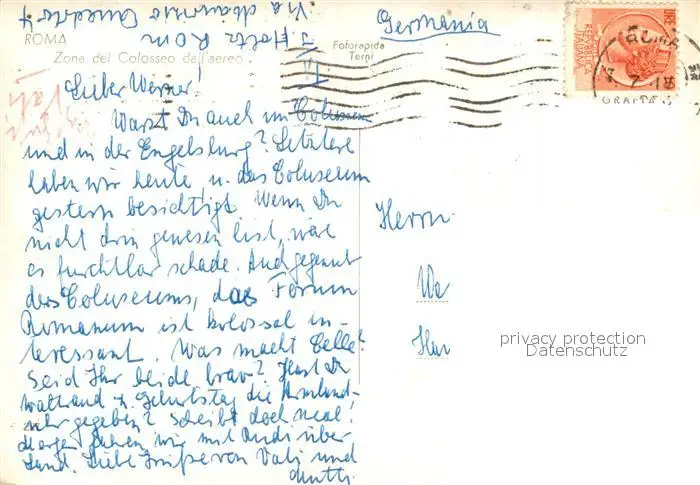 Germania
ROMA
Zona del Colosseo dall'aereo
Fotorapida
Terni
REPUBBLICA
ITALIANA
ROMA
Lieber Werner!
Warst Du auch im Colosseum
und in der Engelsburg? Letztere
haben wir heute u. das Coluseum
gestern besichtigt. Wenn Du
nicht drin gewesen bist, wär
es furchtbar schade. Auch gegenüber
des Coluseums, das Forum
Romanum ist kolossal in-
teressant. Was macht Celle?
Seid Ihr beide brav? Hast Du
Waltraud z. Geburtstag die Armband-
uhr gegeben? Schreibt doch mal!
Morgen fahren wir mit Audi über
Land. Liebe Grüße von Vati und
Mutti.
Vati
Herrn
We
Han
privacy protection
Datenschutz